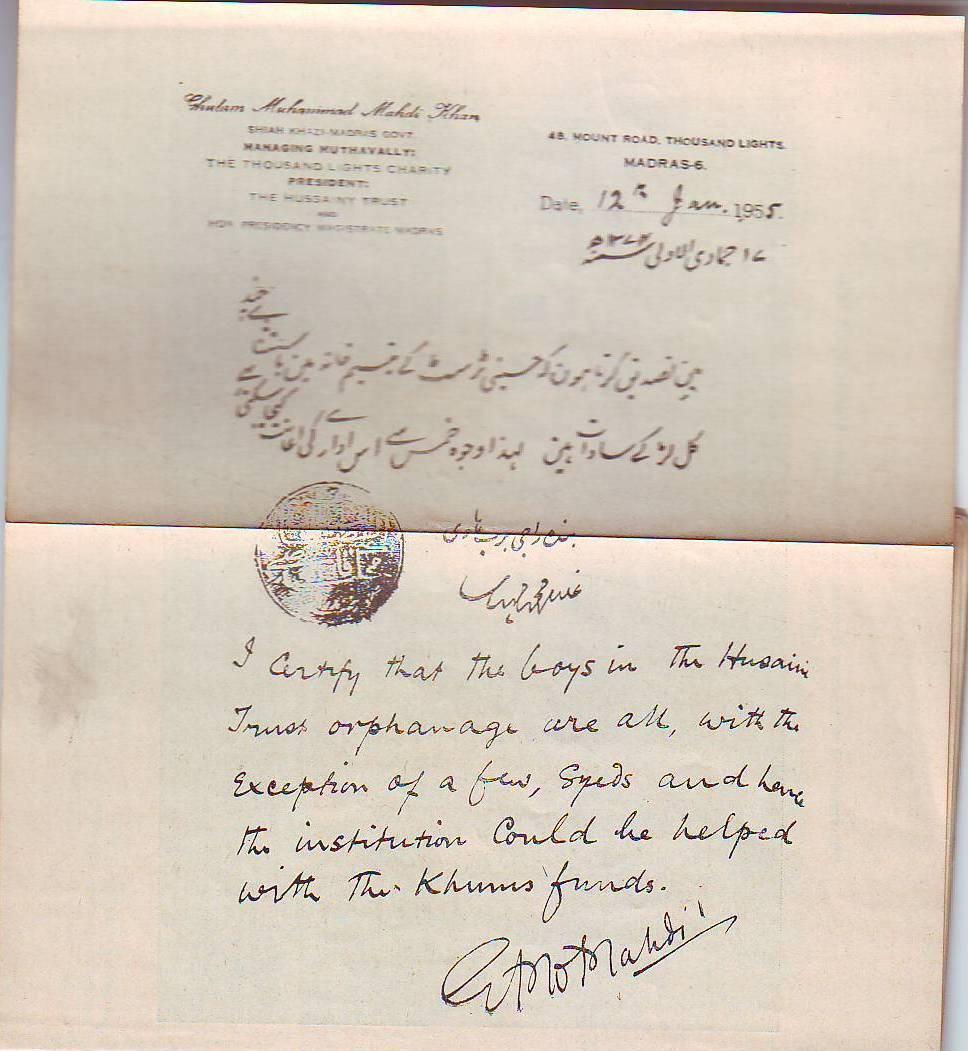 Ghulam Muhammad Mahdi Khan
SHIAH KHAZI-MADRAS GOVT.
MANAGING MUTHAVALLY:
THE THOUSAND LIGHTS CHARITY
PRESIDENT:
THE HUSSAINY TRUST
AND
HON. PRESIDENCY MAGISTRATE-MADRAS
48, MOUNT ROAD, THOUSAND LIGHTS,
MADRAS-6.
Date, 12th Jan. 1955.
۱۷ جمادی الاولی سنہ ۱۳۷۴ھ
میں تصدیق کرتا ہوں کہ حسینی ٹرسٹ کے یتیم خانہ میں
کل لڑکے سادات ہیں لہذا وجوہ خمس سے اس ادارے کی اعانت کیجا سکتی ہے
I Certify that the boys in the Husaini
Trust orphanage are all, with the
Exception of a few, Syeds and hence
the institution Could be helped
with The Khums funds.
G M Mahdi